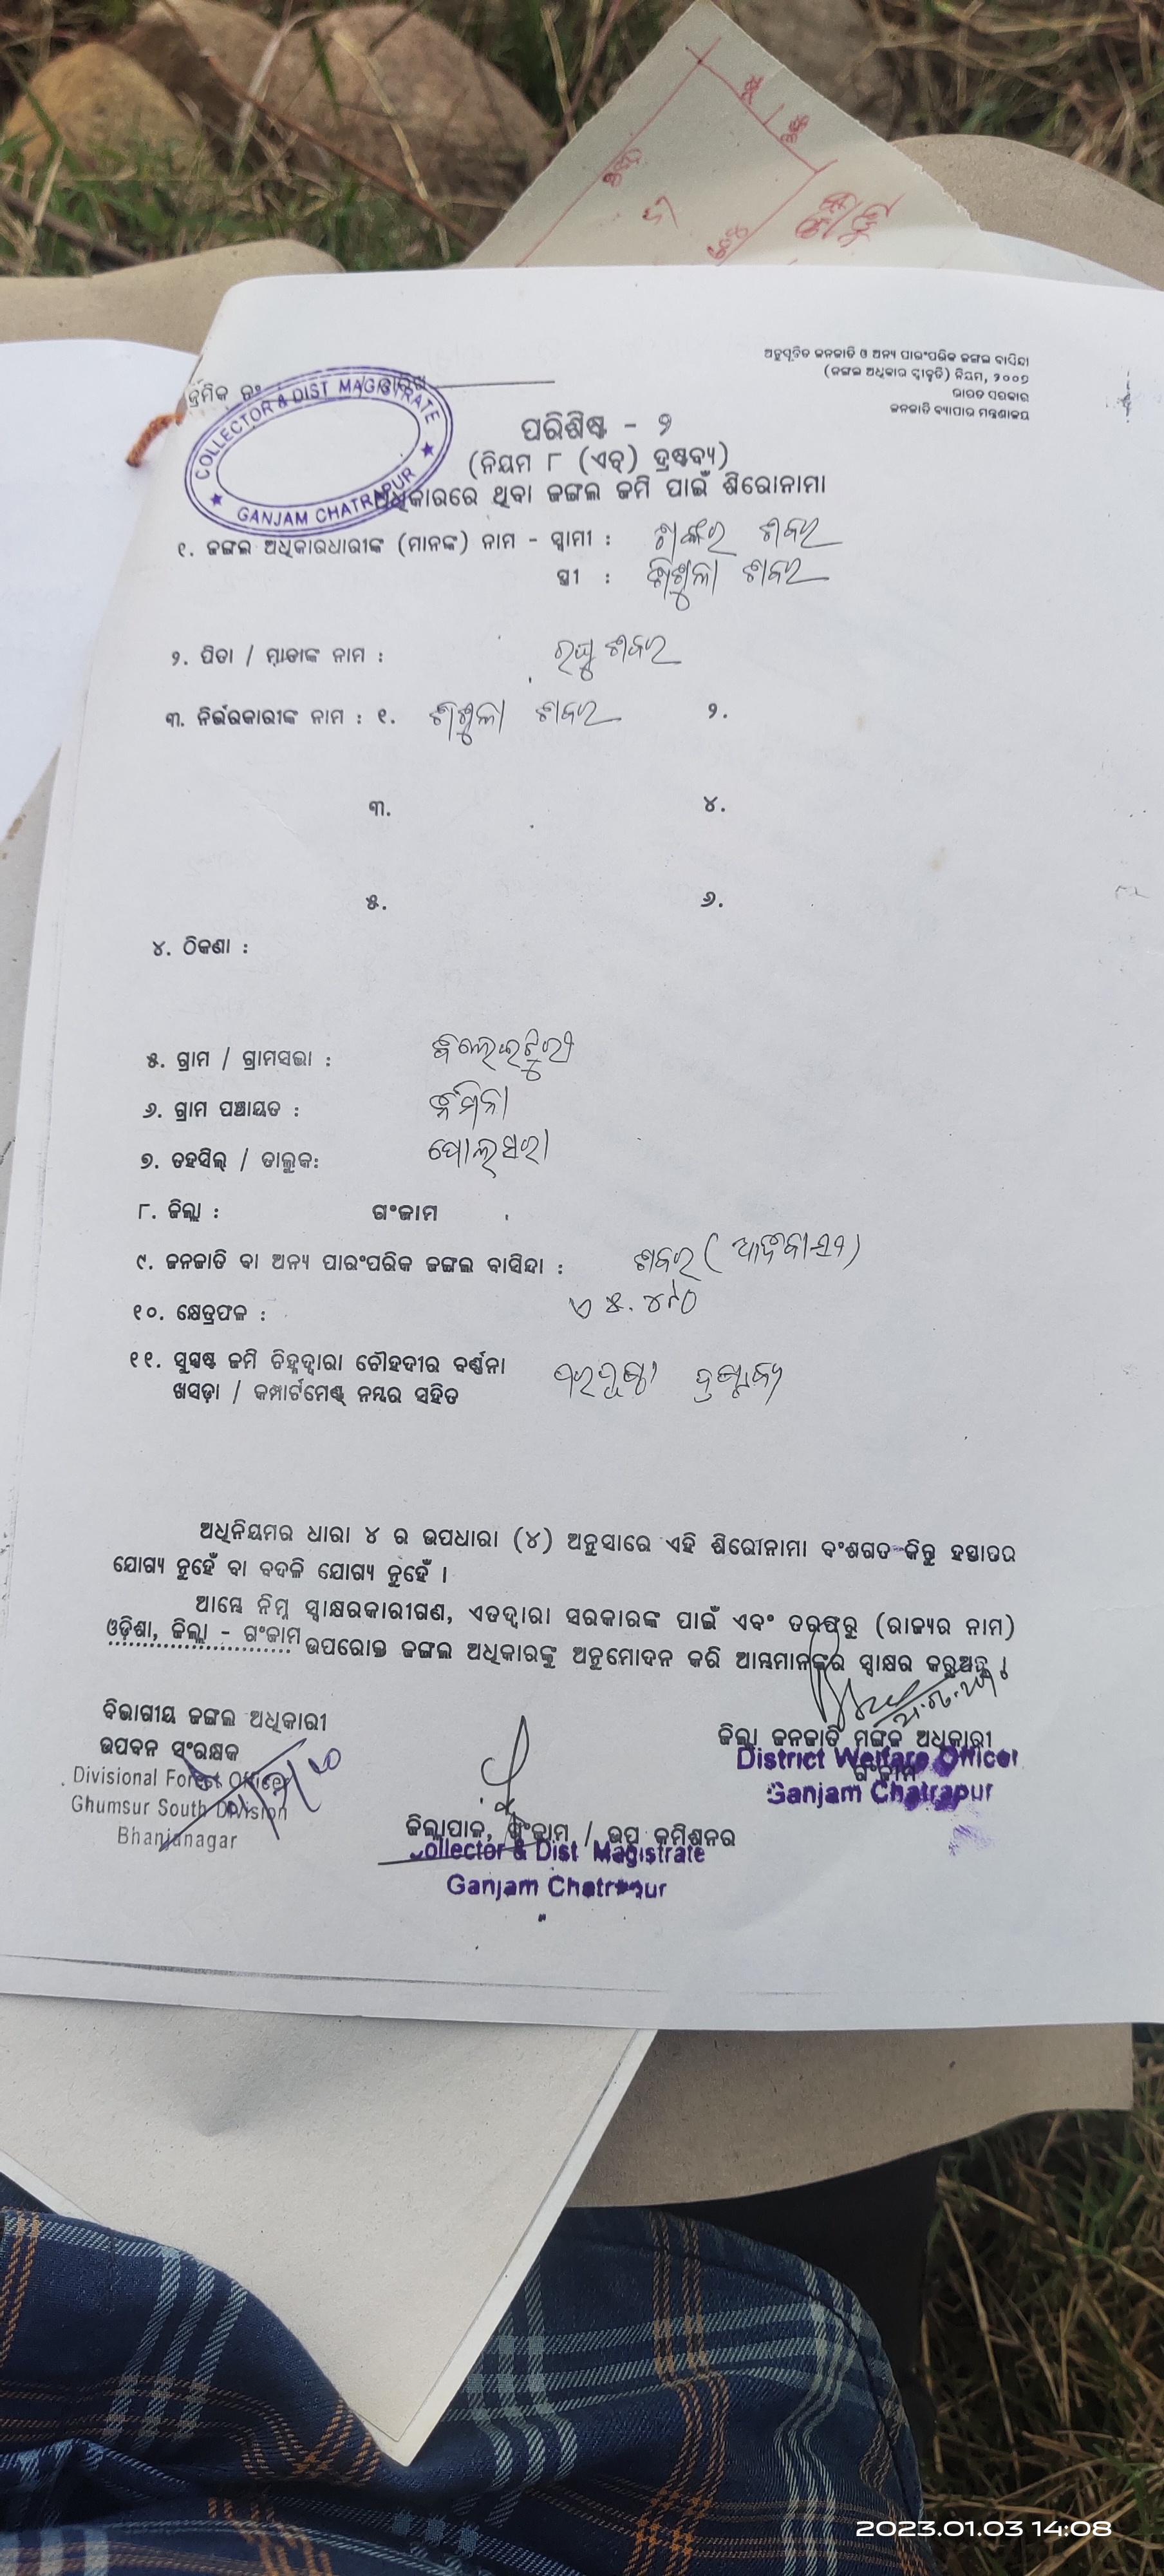 ଅନୁସୂଚିତ ଜନଜାତି ଓ ଅନ୍ୟ ପାରଂପରିକ ଜଙ୍ଗଲ ବାସିନ୍ଦା
(ଜଙ୍ଗଲ ଅଧିକାର ସ୍ୱୀକୃତି) ନିୟମ, ୨୦୦୭
ଭାରତ ସରକାର
ଜନଜାତି ବ୍ୟାପାର ମନ୍ତ୍ରଣାଳୟ
କ୍ରମିକ ନଂ
COLLECTOR & DIST MAGISTRATE
GANJAM CHATRAPUR
ପରିଶିଷ୍ଟ - ୨
(ନିୟମ ୮ (ଏଚ୍) ଦ୍ରଷ୍ଟବ୍ୟ)
ଅଧିକାରରେ ଥିବା ଜଙ୍ଗଲ ଜମି ପାଇଁ ଶିରୋନାମା
୧. ଜଙ୍ଗଲ ଅଧିକାରଧାରୀଙ୍କ (ମାନଙ୍କ) ନାମ - ସ୍ୱାମୀ : ଶଙ୍କର ଶବର
ସ୍ତ୍ରୀ : ଶବର
୨. ପିତା / ମାତାଙ୍କ ନାମ : ରଘୁ ଶବର
୩. ନିର୍ଭରକାରୀଙ୍କ ନାମ : ୧. ଶବର ୨.
୩. ୪.
୫. ୬.
୪. ଠିକଣା :
୫. ଗ୍ରାମ / ଗ୍ରାମସଭା :
୬. ଗ୍ରାମ ପଞ୍ଚାୟତ :
୭. ତହସିଲ୍ / ତାଲୁକ: ପୋଲସରା
୮. ଜିଲ୍ଲା : ଗଂଜାମ
୯. ଜନଜାତି ବା ଅନ୍ୟ ପାରଂପରିକ ଜଙ୍ଗଲ ବାସିନ୍ଦା : ଶବର (ଆଦିବାସୀ)
୧୦. କ୍ଷେତ୍ରଫଳ :
୧୧. ସୁସ୍ପଷ୍ଟ ଜମି ଚିହ୍ନଦ୍ୱାରା ଚୌହଦୀର ବର୍ଣ୍ଣନା
ଖସଡ଼ା / କମ୍ପାର୍ଟମେଣ୍ଟ ନମ୍ବର ସହିତ ପରପୃଷ୍ଠା ଦ୍ରଷ୍ଟବ୍ୟ
ଅଧିନିୟମର ଧାରା ୪ ର ଉପଧାରା (୪) ଅନୁସାରେ ଏହି ଶିରୋନାମା ବଂଶଗତ କିନ୍ତୁ ହସ୍ତାନ୍ତର
ଯୋଗ୍ୟ ନୁହେଁ ବା ବଦଳି ଯୋଗ୍ୟ ନୁହେଁ ।
ଆମ୍ଭେ ନିମ୍ନ ସ୍ୱାକ୍ଷରକାରୀଗଣ, ଏତଦ୍ୱାରା ସରକାରଙ୍କ ପାଇଁ ଏବଂ ତରଫରୁ (ରାଜ୍ୟର ନାମ)
ଓଡ଼ିଶା, ଜିଲ୍ଲା - ଗଂଜାମ ଉପରୋକ୍ତ ଜଙ୍ଗଲ ଅଧିକାରଙ୍କୁ ଅନୁମୋଦନ କରି ଆମ୍ଭମାନଙ୍କର ସ୍ୱାକ୍ଷର କରୁଅଛୁ ।
ବିଭାଗୀୟ ଜଙ୍ଗଲ ଅଧିକାରୀ
ଉପବନ ସଂରକ୍ଷକ
Divisional Forest Officer
Ghumsur South Division
Bhanjanagar
ଜିଲ୍ଲା ଜନଜାତି ମଙ୍ଗଳ ଅଧିକାରୀ
ଗଂଜାମ
District Welfare Officer
Ganjam Chatrapur
ଜିଲ୍ଲାପାଳ, ଗଂଜାମ / ଉପ କମିଶନର
Collector & Dist Magistrate
Ganjam Chatrapur
2023.01.03 14:08